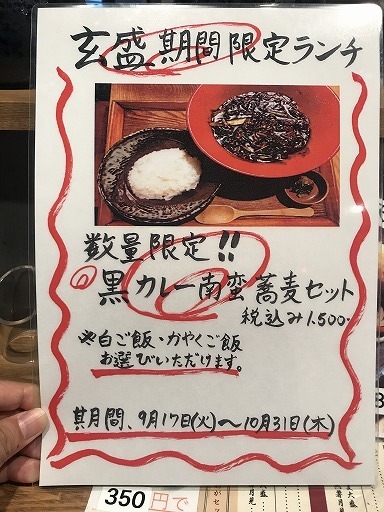 玄盛期間限定ランチ
数量限定!!
黒カレー南蛮蕎麦セット
税込み1.500-
※白ご飯・かやくご飯
お選びいただけます。
期間、9月17日(火)〜10月31日(木)
350円で